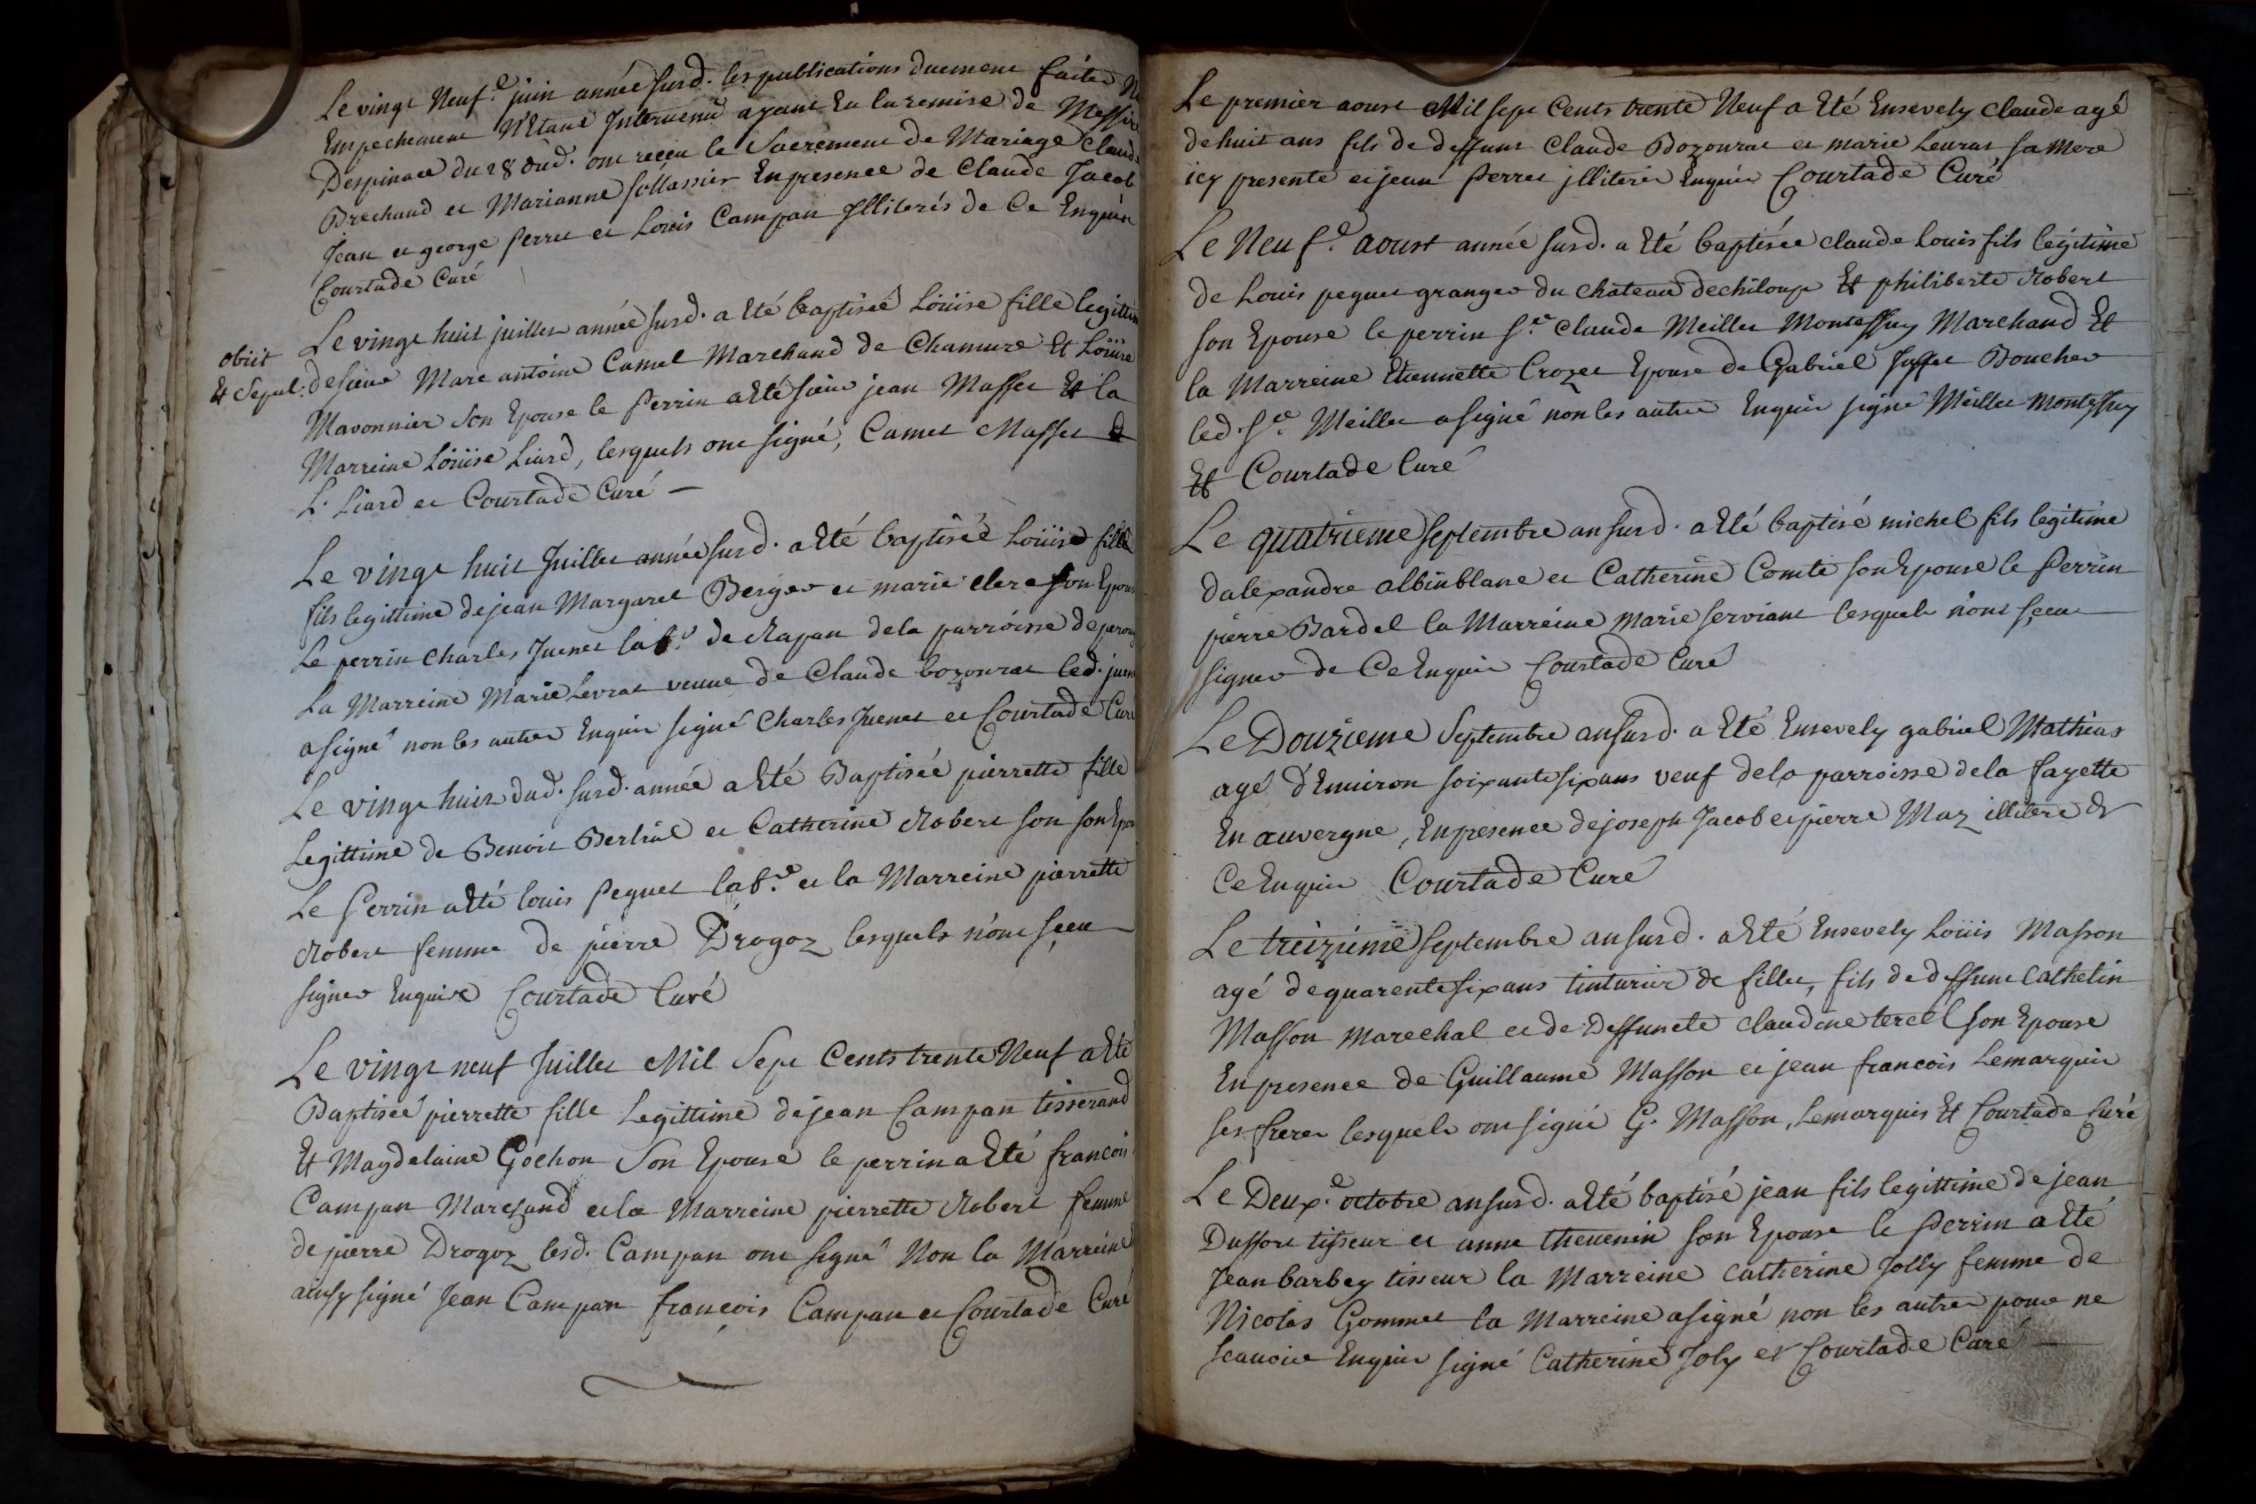 Le vingt Neuf.e juin année susd. les publications duement faites N
Empechement N'Etant Intervenu ayant Eu la remise de Messire
Despinace du 28 dud. ont reçeu le Sacrement de Mariage Claude
Brechand et Marianne sollassier En presence de Claude Jacob
Jean et george Perret et Loüis Campan Illiterés de Ce Enquis
Courtade Curé
Le vingt huit juillet année susd. a Eté baptiseé Loüise fille legittime
obiit
Et Sepul: de sieur Marc antoine Camet Marchand de Chamure Et Loüise
Mavonnier Son Epouse le Perrin a Eté sieur jean Masset Et la
Marreine Loüise Liard, lesquels ont signé, Camet Masset
L. Liard et Courtade Curé —
Le vingt huit Juillet année susd. a Eté baptisée Loüise fille
fils legittime de jean Margaret Berger et marie clere son Epouse
Le perrin Charles Juenet lab.r de Rapan dela parroisse de perou
La Marreine Marie Levrat veuue de Claude bozonrat led. juenet
a signé non les autres Enquis signé Charles Juenet et Courtade Curé
Le vingt huit dud. susd. année a Eté Baptisée pierrette fille
Legittime de Benoit Bertrül et Catherine Robert son son Epouse
Le Perrin a Eté louis Peguet lab.r et la Marreine pierrette
Robert femme de pierre Drogoz lesquels n'ont sçeu
signer Enquis Courtade Curé
Le vingt neuf Juillet Mil Sept Cents trente Neuf a Eté
Baptisée pierrette fille Legittime de jean Campan tisserand
Et Magdelaine Gochon Son Epouse le perrin a Eté francois
Campan Marchand et la Marreine pierrette Robert femme
de pierre Drogoz lesd. Campan ont signé Non la Marreine
ainsy signé Jean Campan françois Campan et Courtade Curé
Le premier aoust Mil sept Cents trente Neuf a Eté Ensevely Claude agé
de huit ans fils de deffunt Claude Bozonrat et marie Leurat sa Mere
icy presente et jean Perret jlliterés Enquis Courtade Curé
Le Neuf.e aoust année susd. a Eté baptisée claude Louis fils legitime
de Louis peguet granger du chateau dechiloup Et philiberte Robert
son Epouse le perrin S.r Claude Meillet Montessuy Marchand Et
la Marreine Etiennette Crozet Epouse de Gabriel Joffet Boucher
led. S.r Meillet a signé non les autres Enquis signé Meillet Montessuy
Et Courtade Curé
Le quatrieme septembre an susd. a Eté baptisé michel fils legitime
dalexandre albinblanc et Catherine Comte son Epouse le Perrin
pierre Bardel la Marreine marie serviant lesquels n'ont sçeu
signer de Ce Enquis Courtade Curé
Le Douzieme Septembre an susd. a Eté Ensevely gabriel Mathias
agé d'Enuiron soixante six ans veuf dela parroisse dela fayette
En auvergne, En presence de joseph Jacob et pierre Maz illiteré de
Ce Enquis Courtade Curé
Le treizieme septembre an susd. a Eté Ensevely Loüis Masson
agé de quarente six ans tinturier de fillet, fils de deffunt Cathelin
Masson marechal et de Deffuncte claudine tercel son Epouse
En presence de Guillaume Masson et jean francois Lemarquis
ses freres lesquels ont signé G. Masson, Lemarquis Et Courtade Curé
Le Deux.e octobre an susd. a Eté baptisé jean fils legittime de jean
Duffort tisseur et anne theuenin son Epouse le Perrin a Eté
Jean barbey tisseur la Marreine catherine Jolly femme de
Nicolas Gommet la Marreine a signé non les autres pour ne
scauoir Enquis signé Catherine Joly et Courtade Curé